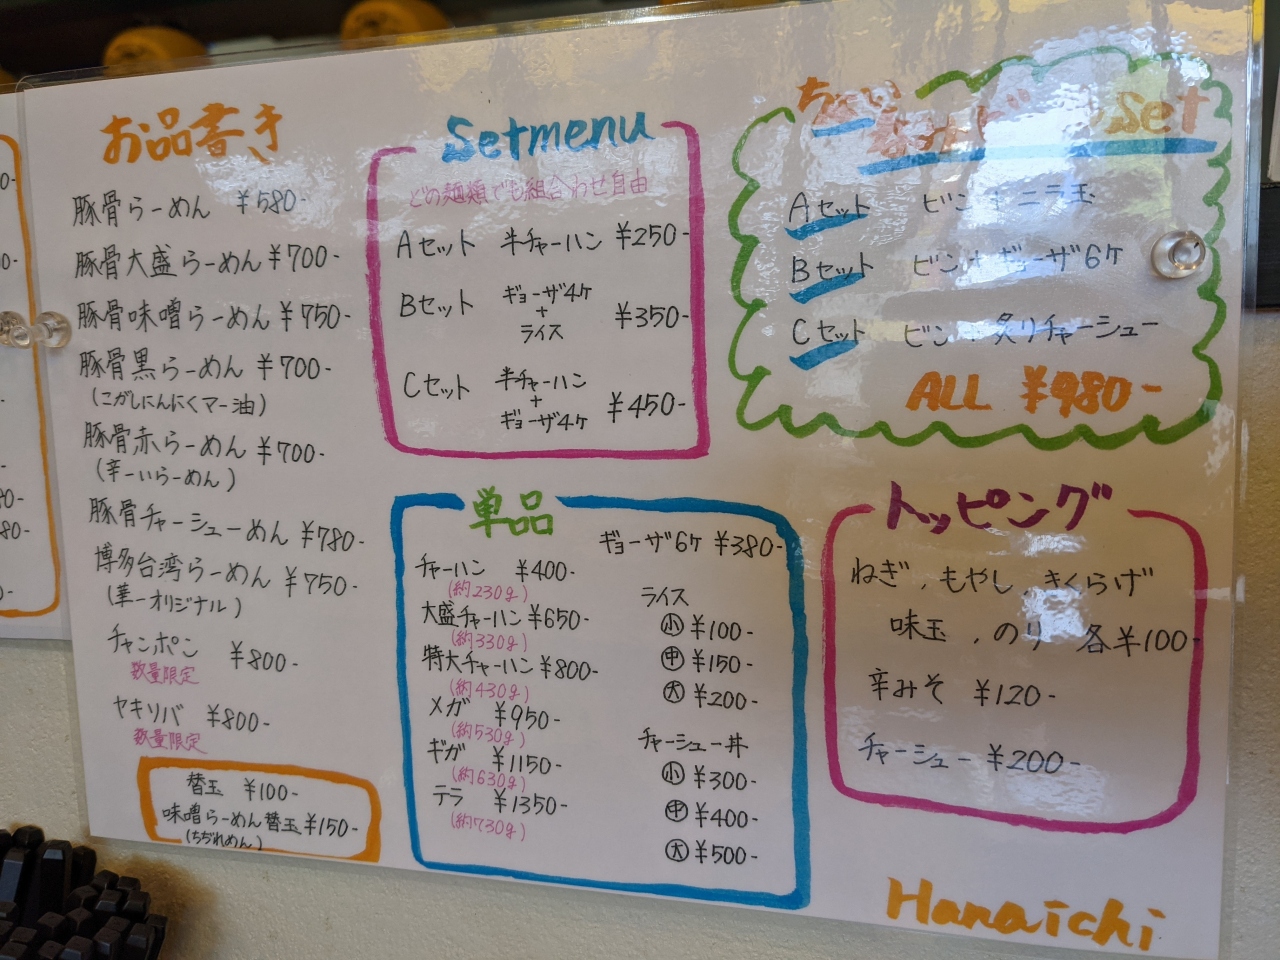 お品書き
豚骨らーめん ¥580-
豚骨大盛らーめん ¥700-
豚骨味噌らーめん ¥750-
豚骨黒らーめん ¥700-
(こがしにんにくマー油)
豚骨赤らーめん ¥700-
(辛ーいらーめん)
豚骨チャーシューめん ¥780-
博多台湾らーめん ¥750-
(華一オリジナル)
チャンポン ¥800-
数量限定
ヤキリバ ¥800-
数量限定
替玉 ¥100-
味噌らーめん替玉 ¥150-
(ちぢれめん)
Setmenu
どの麺類でも組合わせ自由
Aセット 半チャーハン ¥250-
Bセット ギョーザ4ケ
+
ライス
¥350-
Cセット 半チャーハン
+
ギョーザ4ケ
¥450-
Set
Aセット ビン+ニラ玉
Bセット ビン+ギョーザ6ケ
Cセット ビン+炙りチャーシュー
ALL ¥980-
単品
チャーハン ¥400-
(約230g)
大盛チャーハン ¥650-
(約330g)
特大チャーハン ¥800-
(約430g)
メガ ¥950-
(約530g)
ギガ ¥1150-
(約630g)
テラ ¥1350-
(約730g)
ギョーザ6ケ ¥380-
ライス
小 ¥100-
中 ¥150-
大 ¥200-
チャーシュー丼
小 ¥300-
中 ¥400-
大 ¥500-
トッピング
ねぎ、もやし、きくらげ
味玉、のり 各¥100-
辛みそ ¥120-
チャーシュー ¥200-
Hanaichi